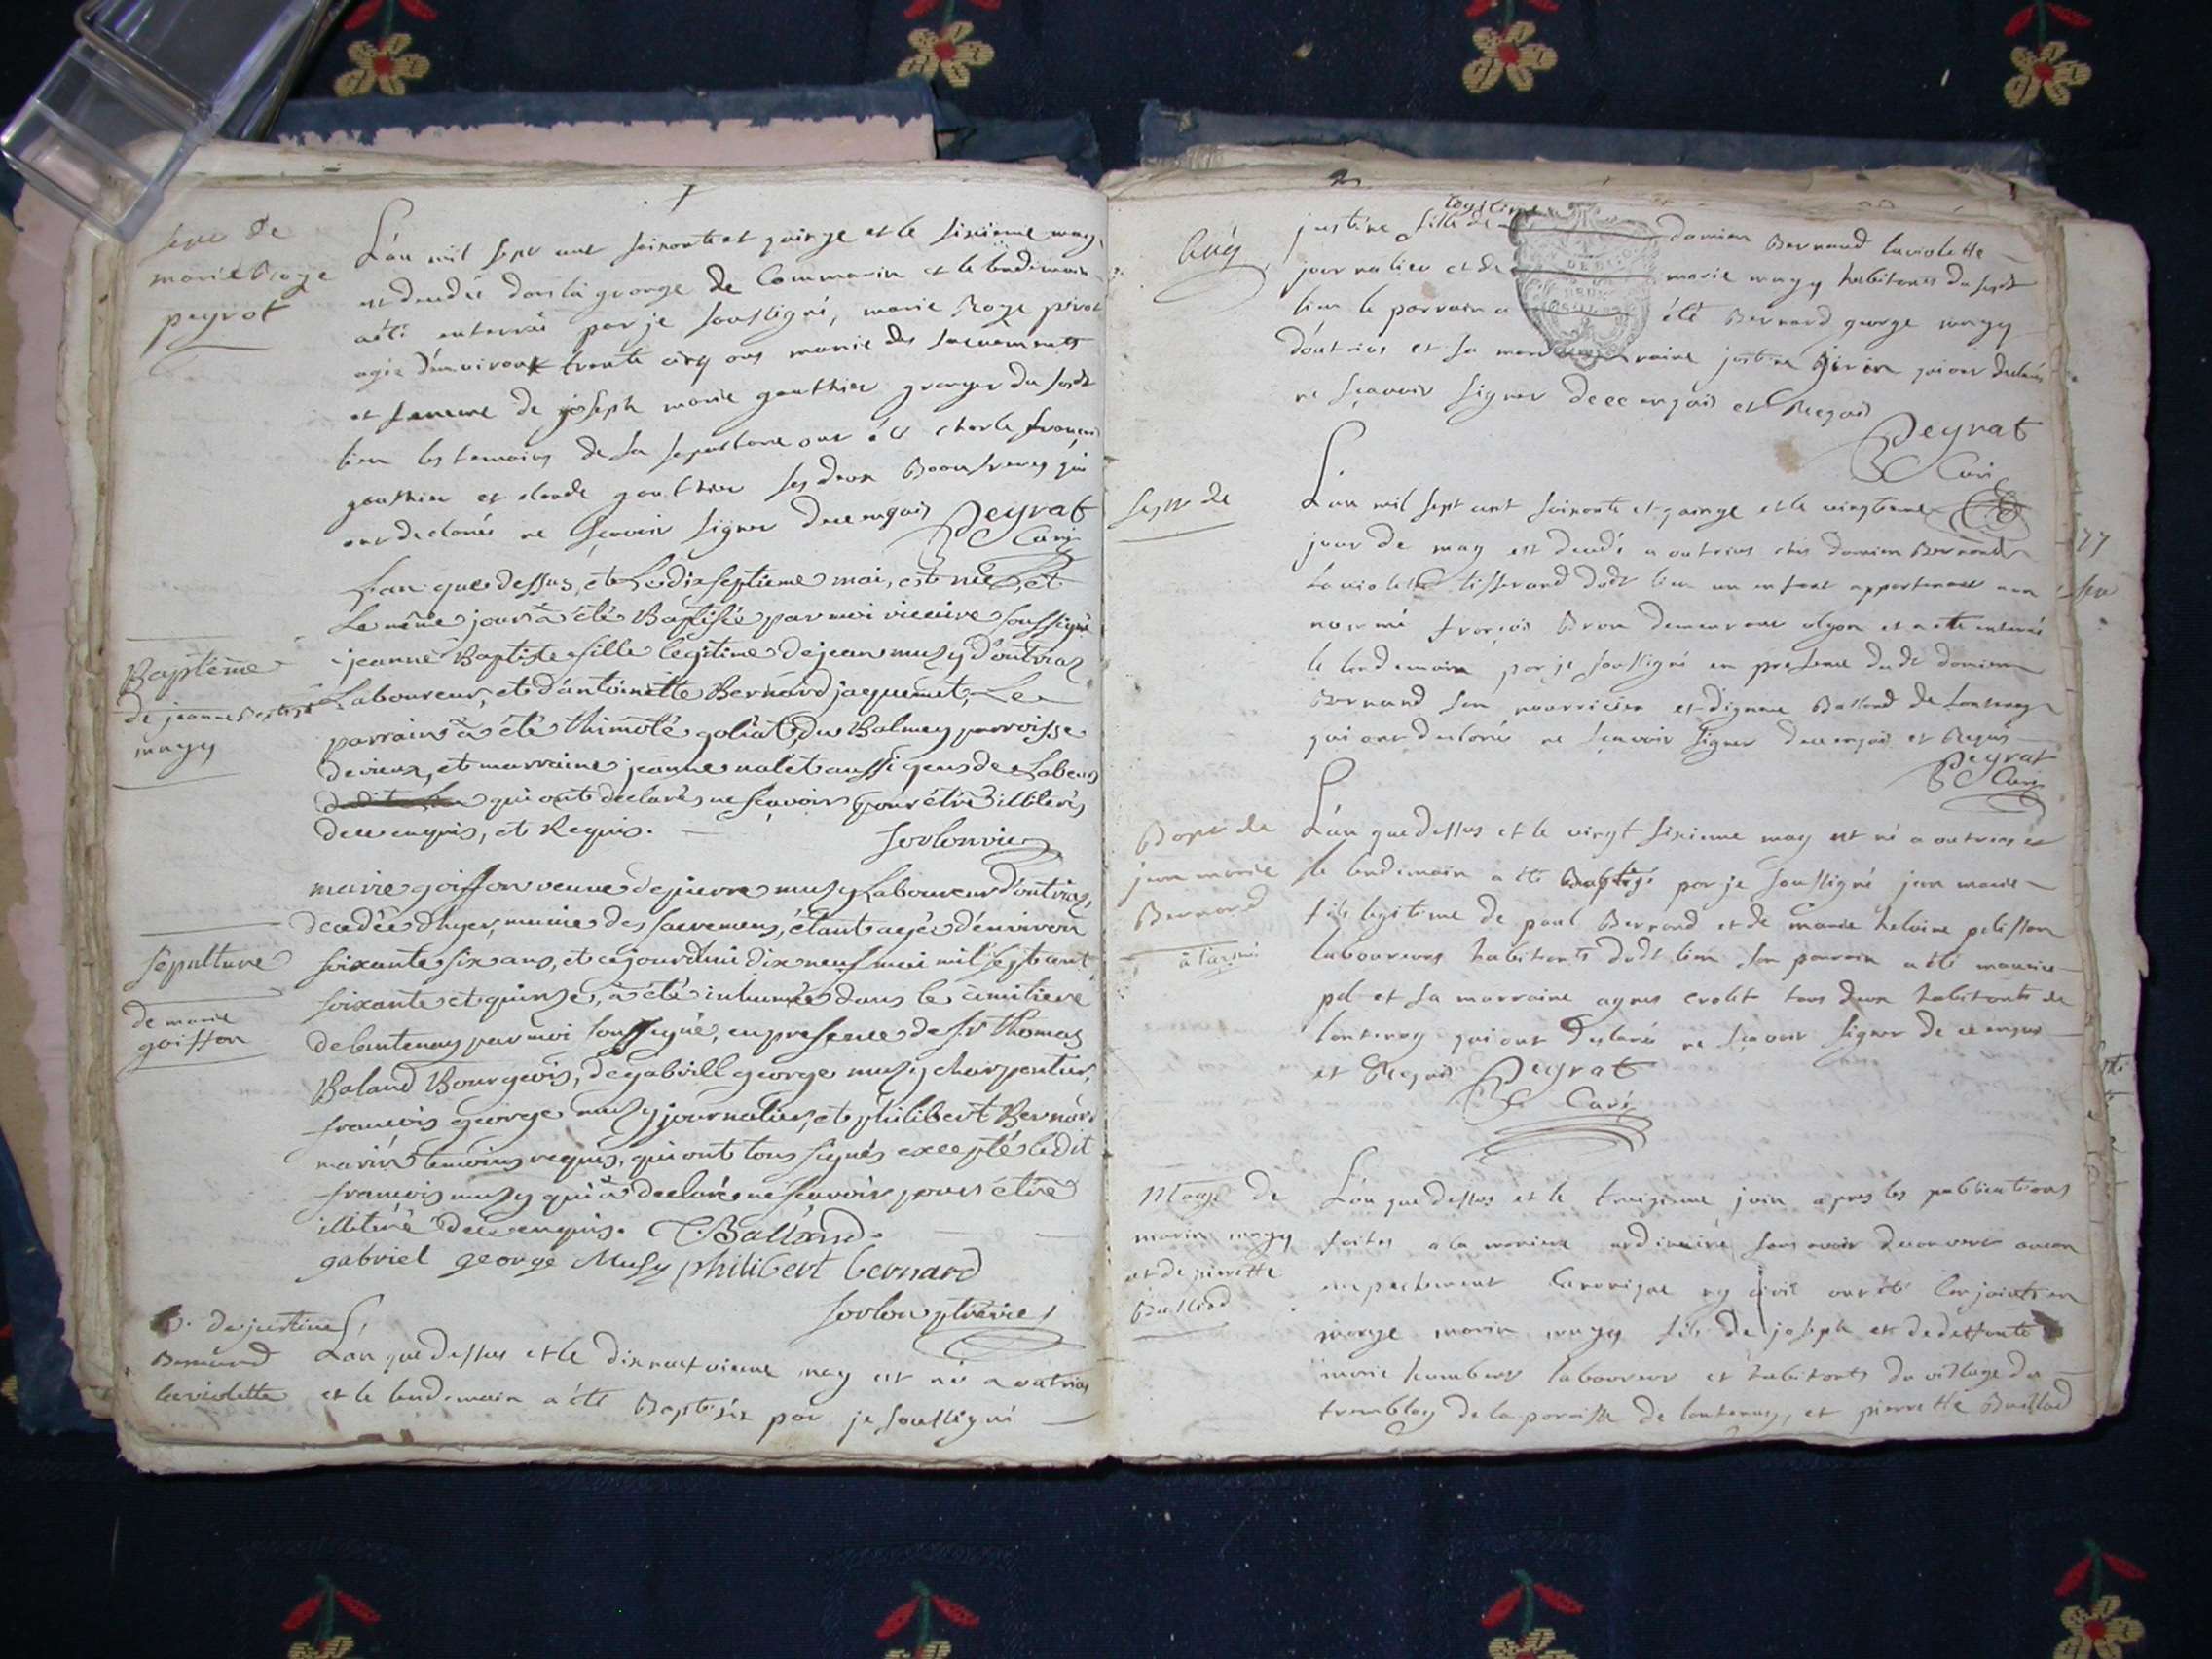 sepre de
marie Roze
peyrot
L'an mil sept cent soixante et quinze et le sixieme may
est decedée dans la grange de Commarin et le lendemain
a été enterrée par je soussigné, marie Roze pirot
agée d'environ trente cinq ans munie des sacrements
et femme de joseph marie gauthier granger du susdt
lieu les temoins de sa sepulture ont été charle françois
gauthier et claude gauthier ses deux Beaufreres qui
ont declarés ne sçavoir signer de ce enquis Peyrat
Curé
Baptême
de jeanne Baptiste
muzy
L'an que dessus, et Le dix septieme mai, est née, et
Le même jour a été Baptisée par moi vicaire soussigné
jeanne Baptiste fille legitime de jean muzy d'outriaz
Laboureur, et d'antoinette Bernard jaquemet, Le
parrain a été thimoté goliat, du Balmey parroisse
de vieux, et marraine jeanne nalet aussi gens de Labeur
qui ont declarés ne sçavoir pour être illiterés
de ce enquis, et Requis.
sorlon vic
sépulture
de marie
goiffon
marie goiffon veuve de pierre muzy Laboureur d'outriaz,
decedée d'hyer, munie des sacremens, étant agée d'environ
soixante six ans, et cejourdhui dix neuf mai mil sept cent
soixante et quinze, a été inhumée dans le cimetiere
de lantenay par moi soussigné, en presence de sr thomas
Baland Bourgeois, de gabriel george muzy charpentier,
francois george muzy journalier, et philibert Bernard
marin temoins requis, qui ont tous signés excepté ledit
francois muzy qui a declaré ne sçavoir pour être
illiteré de ce enquis. T. Balland.
gabriel george Musy philibert bernard
sorlon ptre vic
B. de justine
Bernard
laviolette
L'an que dessus et le dix neuf vieme may est né a outrias
et le lendemain a été Baptisée par je soussigné
justine fille legitime de damien Bernard laviolette
journalier et de marie muzy habitants du susdt
lieu le parrain a été Bernard george muzy
d'outrias et sa marraine justine qui ont declarés
ne sçavoir signer de ce enquis et Requis
Peyrat
Curé
sepre de
L'an mil sept cent soixante et quinze et le vingtieme
jour de may est decedé a outrias chés damien Bernard
Laviolette tisserand dudt lieu un enfant appartenant a un
nommé françois Bron demeurant a lyon et a été enterré
le lendemain par je soussigné en presence dudt damien
Bernard son nourricier et Balland de Lantenay
qui ont declarés ne sçavoir signer de ce enquis et Requis
Peyrat
Curé
Bapt de
jean marie
Bernard
L'an que dessus et le vingt sixieme may est né a outrias et
le lendemain a été baptisé par je soussigné jean marie
fils legitime de paul Bernard et de marie pelisson
laboureurs habitants dudt lieu son parrain a été maurice
pel et sa marraine agnes crolet tous deux habitants de
lantenay qui ont declarés ne sçavoir signer de ce enquis
et Requis Peyrat
Curé
Mage de
marin muzy
et de pierrette
Balland
L'an que dessus et le treizieme juin apres les publications
faites a la maniere ordinaire sans avoir decouvert aucun
empechement Canonique ny civil ont été Conjoints en
mariage marin muzy fils de joseph et de deffunte
marie humbert laboureur et habitants du village du
tremblay de la paroisse de lantenay, et pierrette Balland